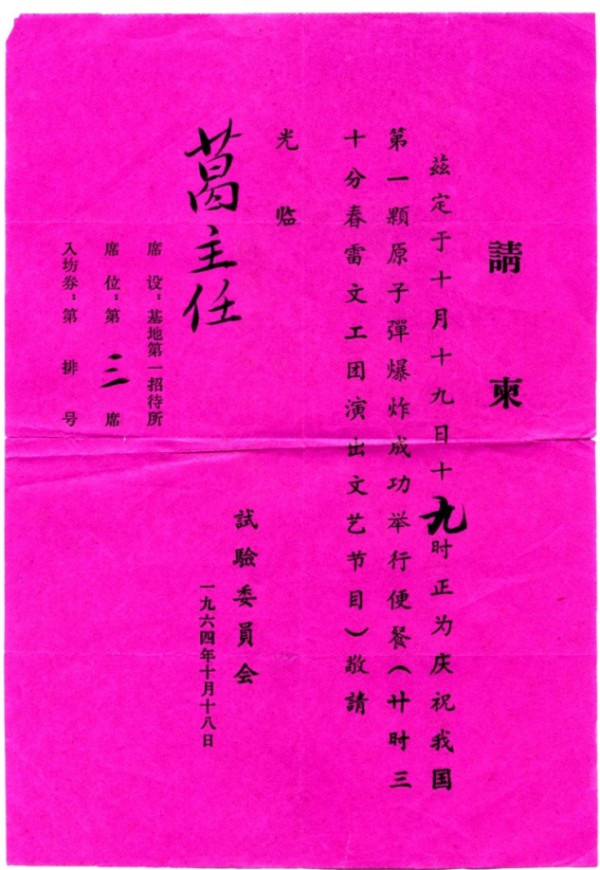 請柬
茲定于十月十九日十九时正为庆祝我国
第一顆原子彈爆炸成功举行便餐(廿时三
十分春雷文工团演出文艺节目)敬請
光临
葛主任
席設:基地第一招待所
席位:第三席
入坊券:第 排 号
試驗委員会
一九六四年十月十八日